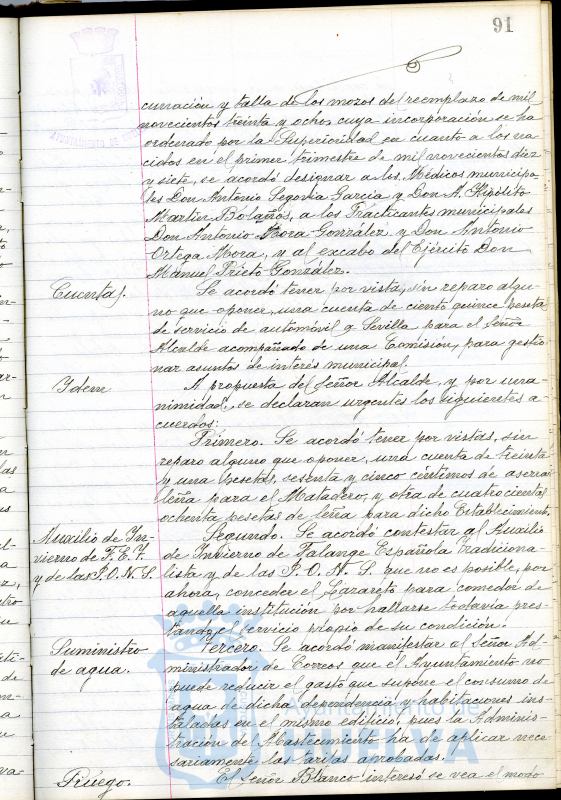 91
curnación y talla de los mozos del reemplazo de mil
novecientos treinta y ocho, cuya incorporación se ha
ordenado por la Superioridad en cuanto a los na
cidos en el primer trimestre de mil novecientos diez
y siete, se acordó designar a los Médicos municipa
les Don Antonio Segovia García y Don A. Hipólito
Martín Bolaños, a los Practicantes municipales
Don Antonio Mora González y Don Antonio
Ortega Mora, y al excabo del Ejército Don
Manuel Prieto González.
Cuentas.
Se acordó tener por vista, sin reparo algu-
no que oponer, una cuenta de ciento quince pesetas
de servicio de automóvil a Sevilla para el Señor
Alcalde acompañado de una Comisión, para gestio
nar asuntos de interés municipal.
Ydem
A propuesta del Señor Alcalde, y por una-
nimidad, se declaran urgentes los siguientes a-
cuerdos:
Primero. Se acordó tener por vistas, sin
reparo alguno que oponer, una cuenta de treinta
y una pesetas, sesenta y cinco céntimos de aserrar
leña para el Matadero, y otra de cuatrocientas
ochenta pesetas de leña para dicho Establecimiento.
Auxilio de In-
vierno de F.E.T.
y de las J.O.N.S.
Segundo. Se acordó contestar al Auxilio
de Invierno de Falange Española Tradiciona-
lista y de las J.O.N.S. que no es posible, por
ahora, conceder el Lazareto para comedor de
aquella institución por hallarse todavía pres-
tando el servicio propio de su condición.
Suministro
de agua.
Tercero. Se acordó manifestar al Señor Ad-
ministrador de Correos que el Ayuntamiento no
puede reducir el gasto que supone el consumo de
agua de dicha dependencia y habitaciones ins-
taladas en el mismo edificio, pues la Adminis-
tración de Abastecimiento ha de aplicar nece-
sariamente las tarifas aprobadas.
Ruego.
El Señor Blanco interesó se vea el modo
Ayuntamiento de
HUELVA